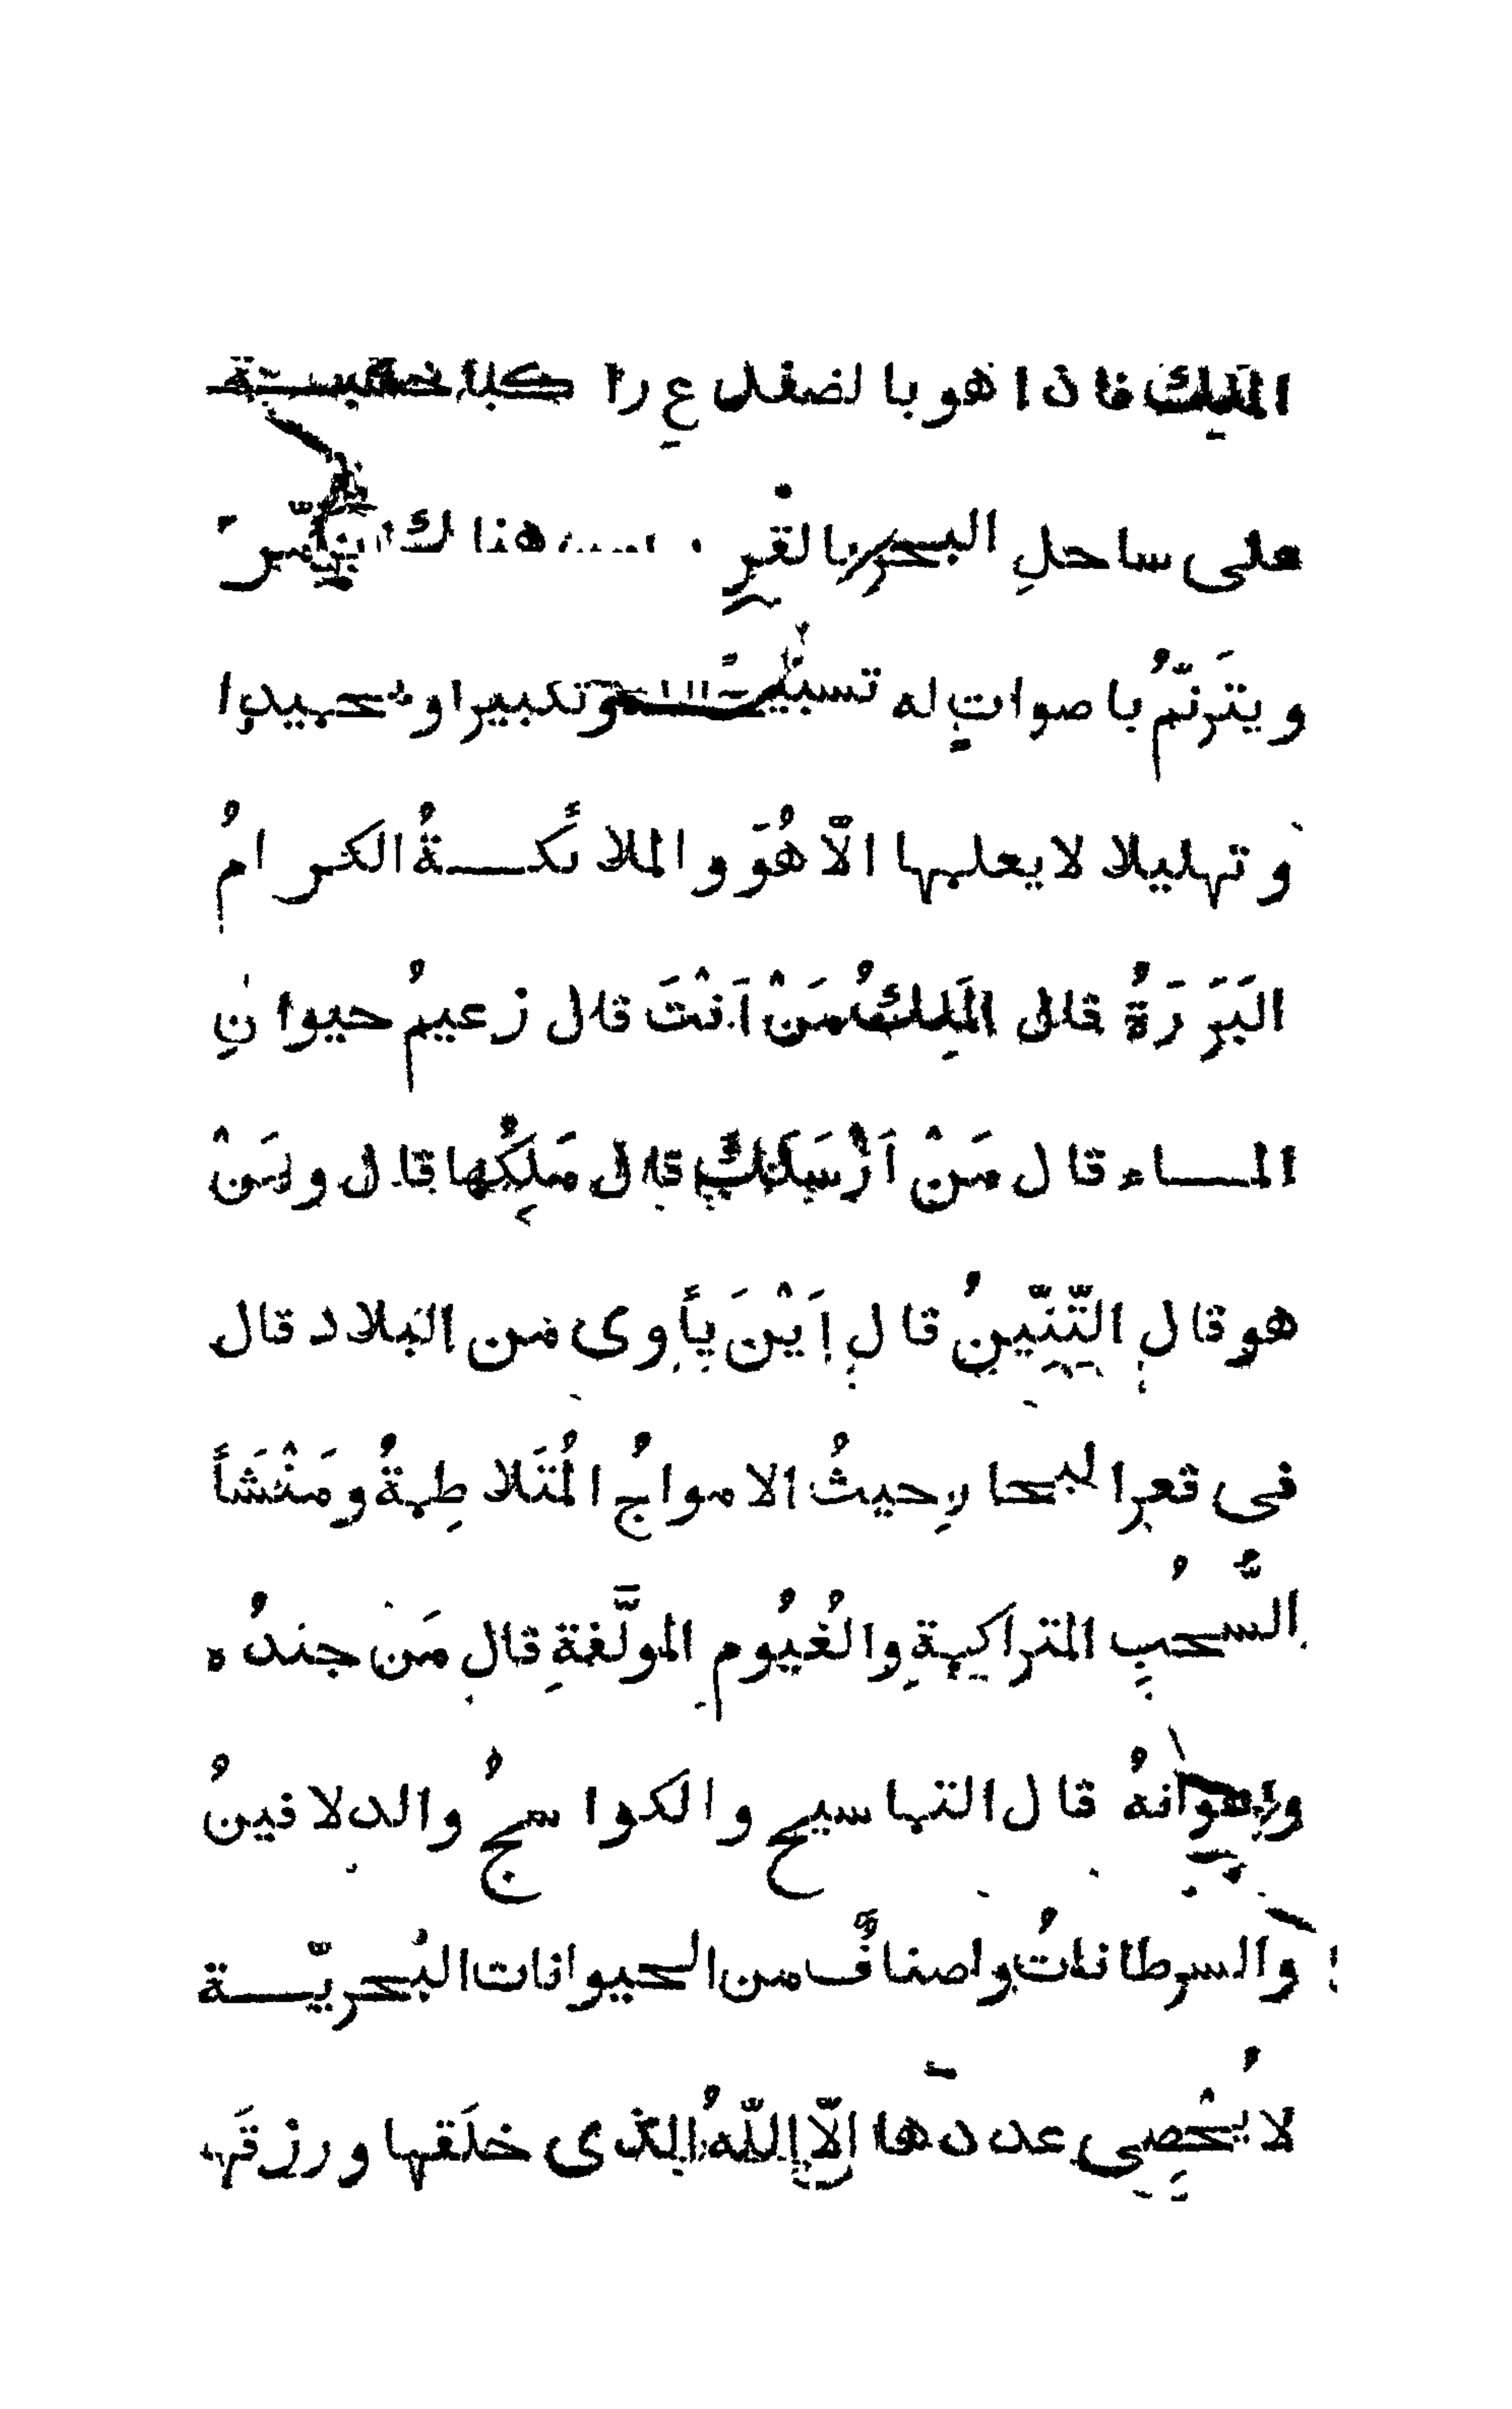 الملِك فاذا هو بالضفدع راكبا خشبة
على ساحلِ البحر بالقرب هناك
ويتَرنّمُ باصواتٍ له وتكبيرا وتحميدا
وتهليلا لا يعلمها الّا هُوَ والملائكةُ الكرامُ
البَرَرَةُ قال المَلِكُ مَنْ اَنْتَ قال زعيمُ حيوانِ
الماء قال مَنْ اَرْسَلَكَ قال مَلِكُها قال ومَنْ
هو قال التّنّينُ قال اَيْنَ يأوى من البلاد قال
فى قعر البحارِ حيثُ الامواجُ المُتَلاطِمةُ ومَنْشَأُ
السُّحُبِ المتراكمةِ والغُيُومِ المولَّفةِ قال مَن جندُه
واعوانهُ قال التماسيح والكواسجُ والدلافينُ
والسرطاناتُ واصنافٌ من الحيوانات البَحريّة
لا يُحْصِى عددها الّا اللّهُ الذى خلَقها ورزقَها